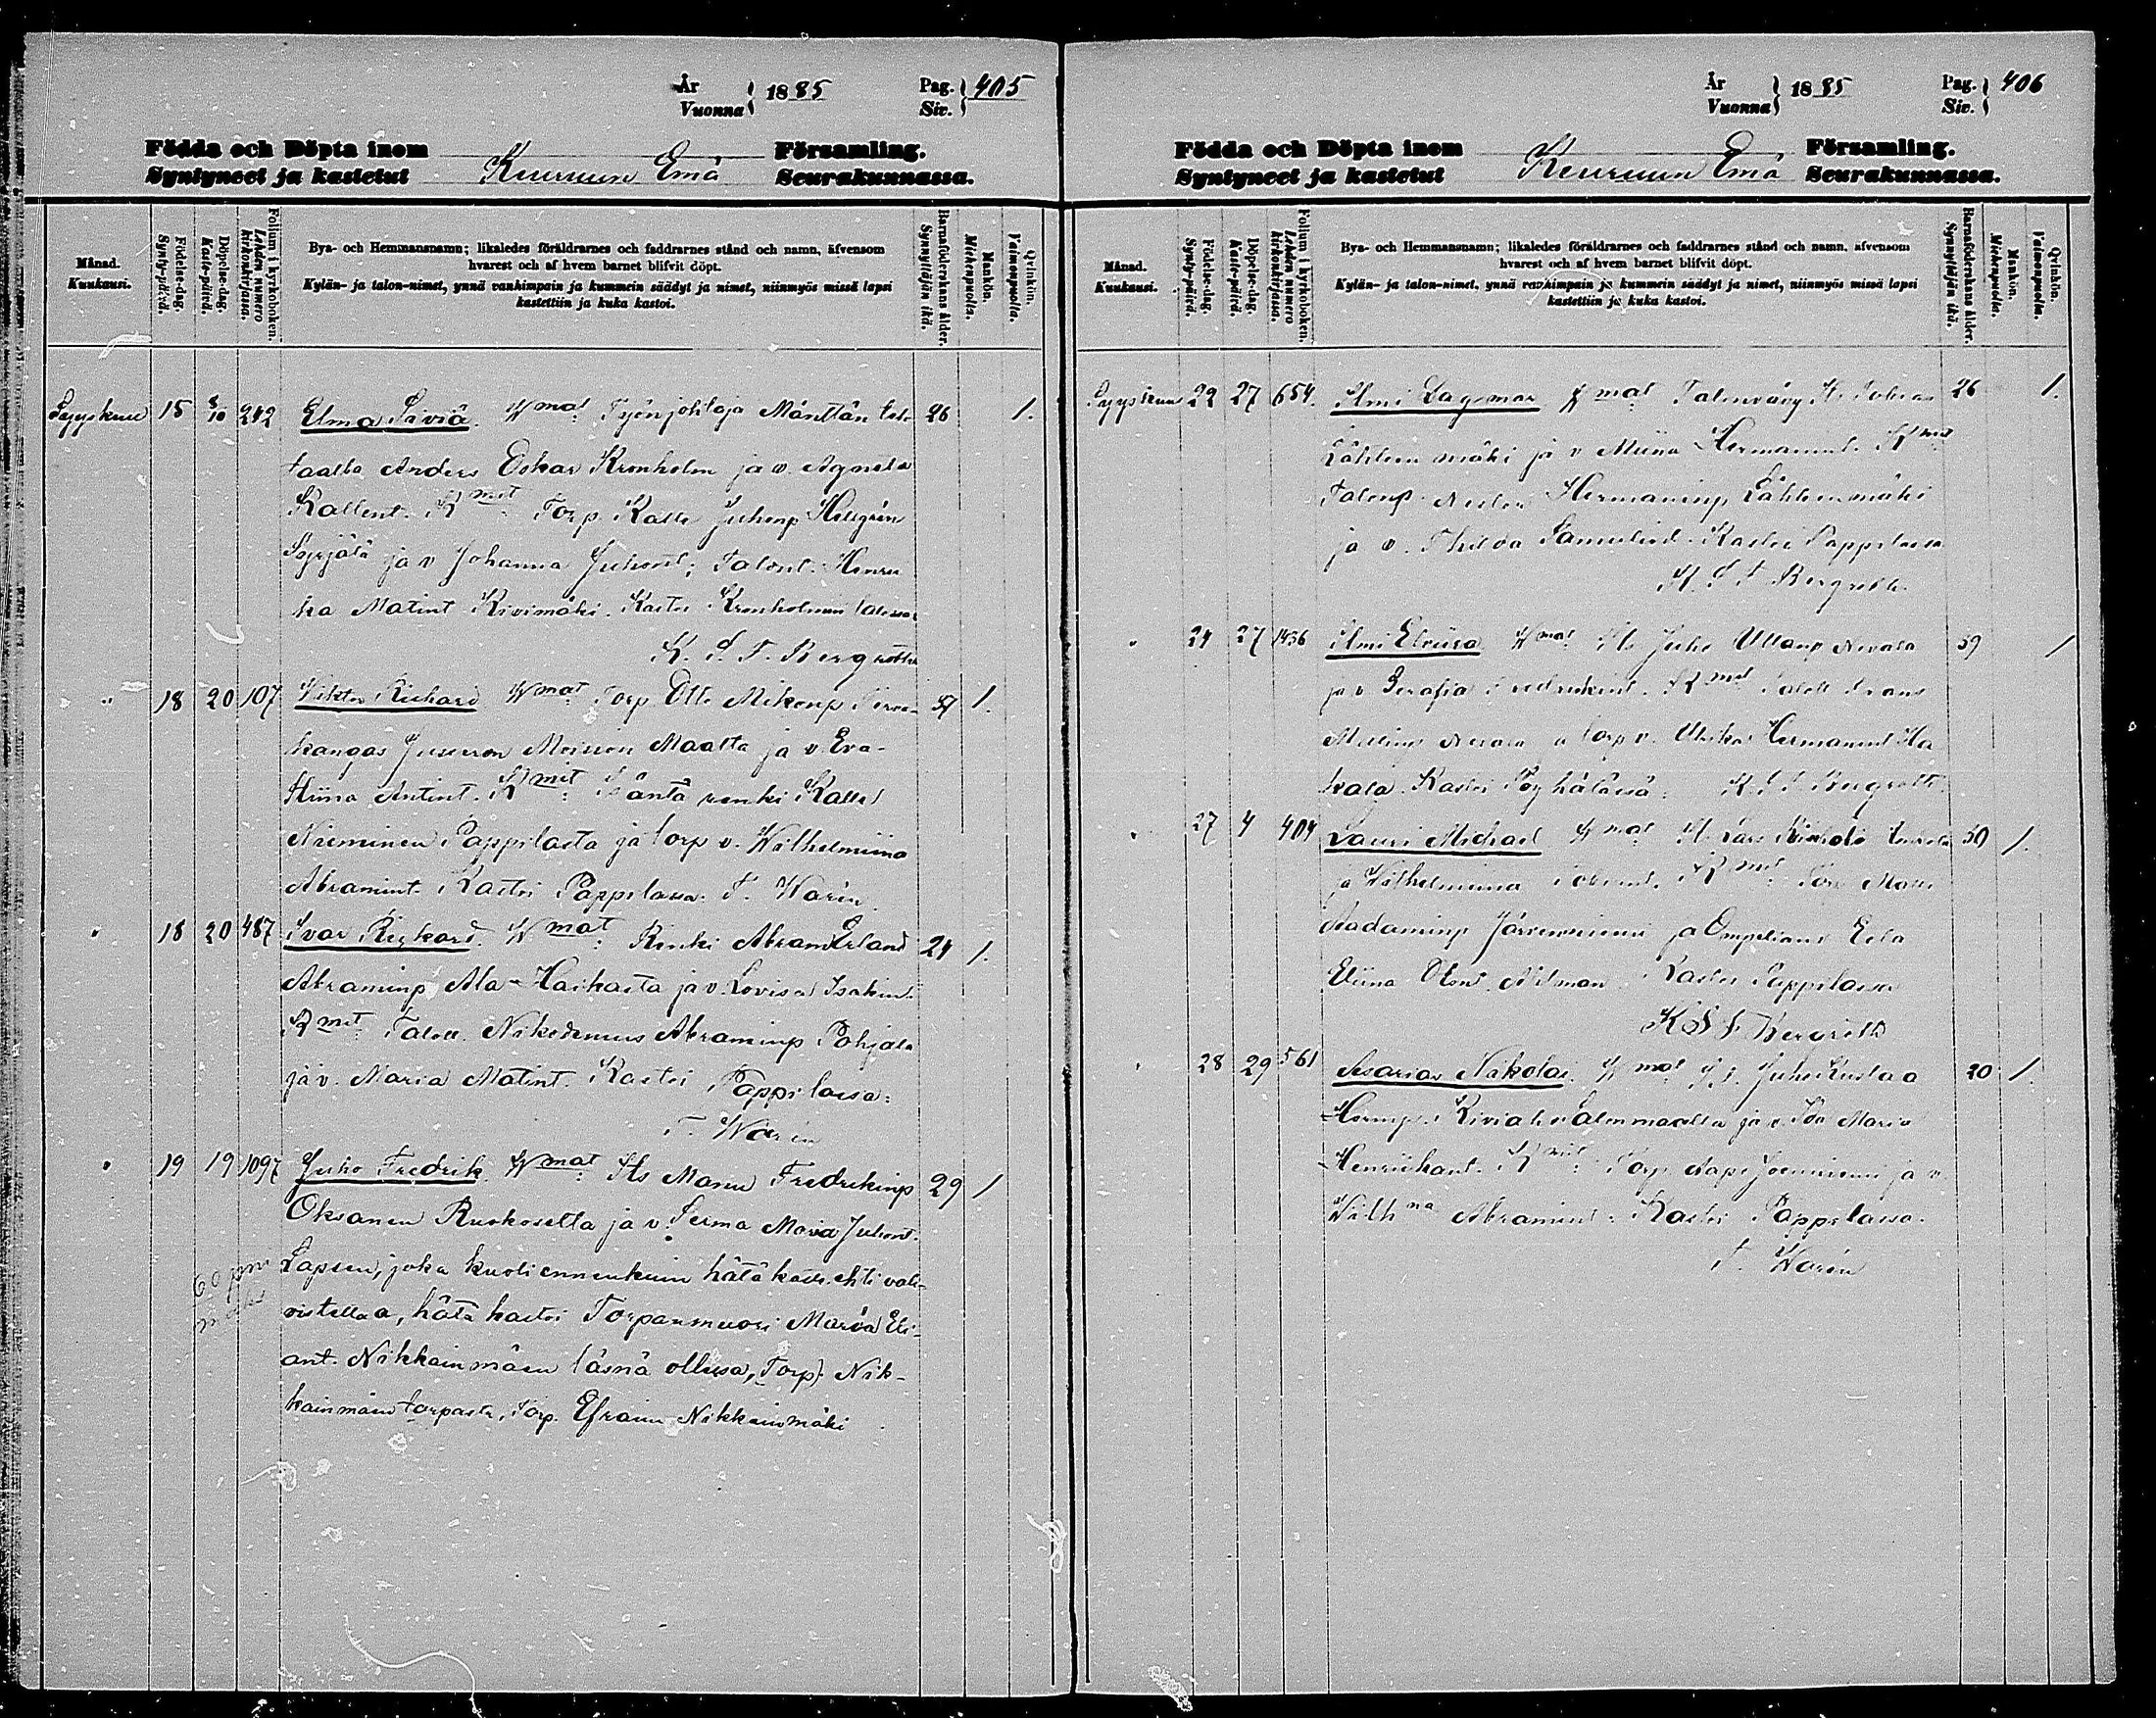 År
Vuonna 1885
Pag.
Siv. 405
Födda och Döpta inom
Syntyneet ja kastetut
Keuruun Emä
Församling.
Seurakunnassa.
Månad.
Kuukausi.
Födelse-dag.
Synty-päivä.
Döpelse-dag.
Kaste-päivä.
Folium i kyrkoboken.
Lehden numero kirkonkirjassa.
Bya- och Hemmansnamn; likaledes föräldrarnes och faddrarnes stånd och namn, äfvensom
hvarest och af hvem barnet blifvit döpt.
Kylän- ja talon-nimet, ynnä vanhimpain ja kummein säädyt ja nimet, niinmyös missä lapsi
kastettiin ja kuka kastoi.
Barnaföderskans ålder.
Synnyttäjän ikä.
Mankön.
Miehenpuolia.
Qvinkön.
Vaimonpuolia.
Syyskuu 15 8/10 242 Elma Siviä. Wmat Työnjohtaja Mänttän teh- 26 1.
taalta Anders Oskar Kronholm ja v. Agneta
Kallent. Kmit Torp. Kalle Juhonp Hellgrén
Syrjälä ja v Johanna Juhont; Talont. Henru
ka Matint Kivimäki. Kastoi Kronholmin talossa
K. S. T. Bergroth
" 18 20 107 Viktor Richard Wmat Torp Otto Mikonp
kangas Jusuron Moision Maalta ja v. Eva-
Stiina Antint. Kmit: Isäntä renki Kalle
Nieminen Pappilasta ja torp v. Wilhelmiina
Abramint. Kastoi Pappilassa. T. Warén
" 18 20 487 Ivar Rickard. Wmat: Renki Abram Erland 24 1.
Abraminp Ala-Haikasta ja v. Lovisa Isakint.
Kmit Talon. Nikodemus Abraminp Pohjala
ja v. Maria Matint. Kastoi Pappilassa:
T. Warén
" 19 19 1097 Juho Fredrik. Wmat Its Manu Fredrikinp 29 1
Oksanen Ruokoselta ja v. Serma Maria Juhont.
Lapsen, joka kuoli ennenkuin hätäkaste ehti vah-
vistettaa, hätä kastoi Torpanmuori Maria Eli-
ant. Nikkainmäen läsnä ollessa, Torp. Nik-
kainmäen torpasta, Torp. Efraim Nikkainmäki
År
Vuonna 1885
Pag.
Siv. 406
Födda och Döpta inom
Syntyneet ja kastetut
Keuruun Emä
Församling.
Seurakunnassa.
Månad.
Kuukausi.
Födelse-dag.
Synty-päivä.
Döpelse-dag.
Kaste-päivä.
Folium i kyrkoboken.
Lehden numero kirkonkirjassa.
Bya- och Hemmansnamn; likaledes föräldrarnes och faddrarnes stånd och namn, äfvensom
hvarest och af hvem barnet blifvit döpt.
Kylän- ja talon-nimet, ynnä vanhimpain ja kummein säädyt ja nimet, niinmyös missä lapsi
kastettiin ja kuka kastoi.
Barnaföderskans ålder.
Synnyttäjän ikä.
Mankön.
Miehenpuolia.
Qvinkön.
Vaimonpuolia.
Syyskuu 22 27 654. Ilmi Dagmar Wmat Talonvävy 26 1.
Lähteenmäki ja v Miina Hermanint. Kmit
Talonp. Hermaninp Lähteenmäki
ja v. Thilda Kastoi Pappilassa
K. S. T. Bergroth.
" 24 27 1436 Ilmi Elviira Wmat Its Juho Ullanp 39 1
ja v Serafia Kmit
torp v. Ulrika Hermanint Ha
kala. Kastoi Pöyhölässä. K. S. T. Bergroth.
" 27 4 404 Lauri Michael Wmat Its Lars 30 1.
ja Wilhelmiina Kmit Torp Matti
Aadaminp Järvenniemi ja Ompelians Eeva
Eliina Kastoi Pappilassa
K S T Bergroth
" 28 29 561 Asarias Nikolai. Wmat Its. Juho Kustaa 20 1.
Hermp. maalta ja v. Ida Maria
Henriikant. Kmit Torp Aapo Joenniemi ja v.
Wilhna Abramint. Kastoi Pappilassa.
T. Warén